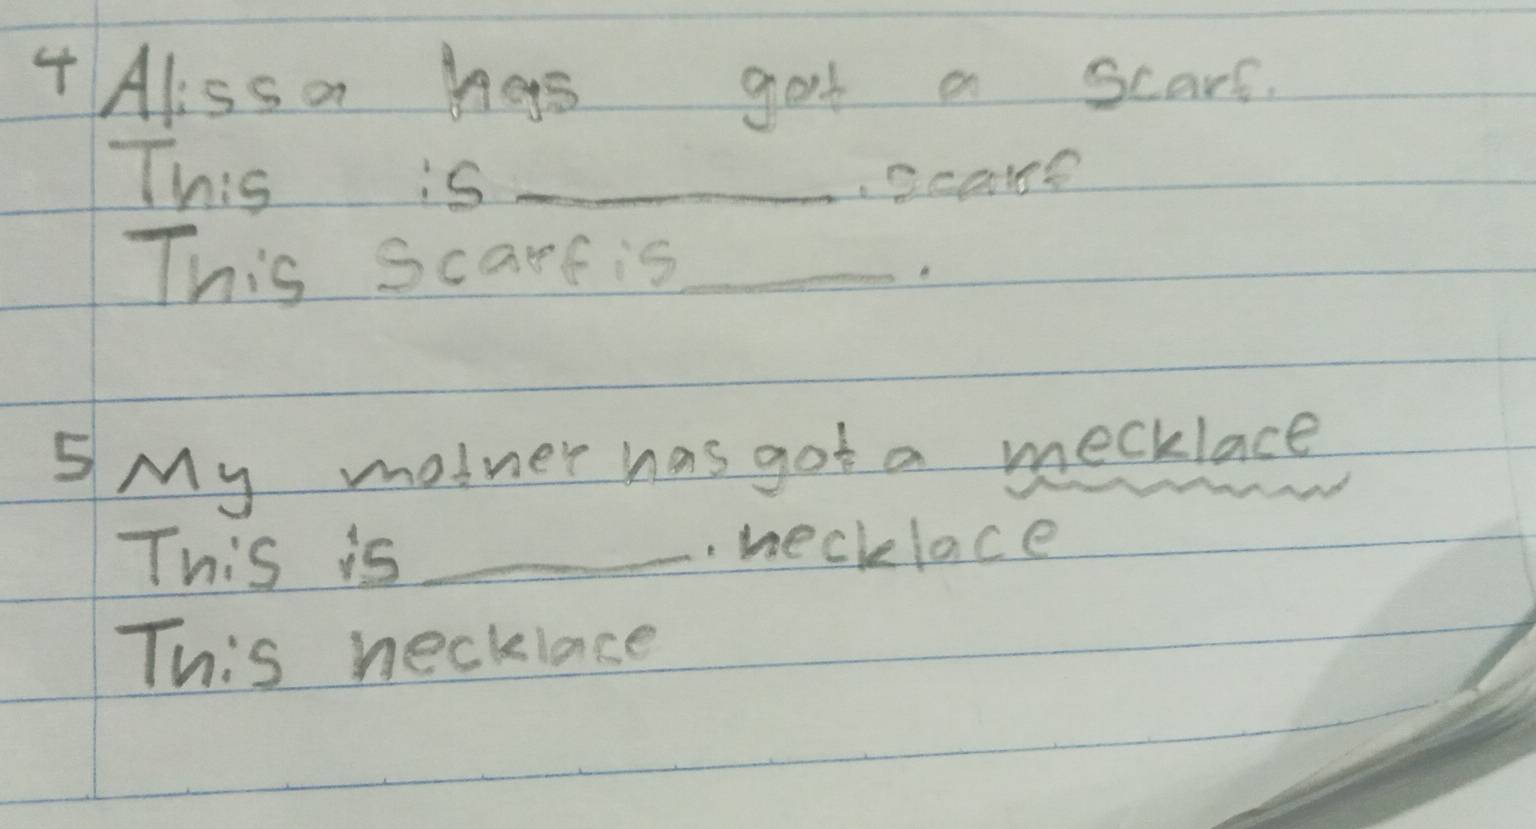 4 Alissa has got a scarf.
This is ________. scarf
This scarf is ______.
5 My mother has got a mecklace
This is ________. necklace
This necklace